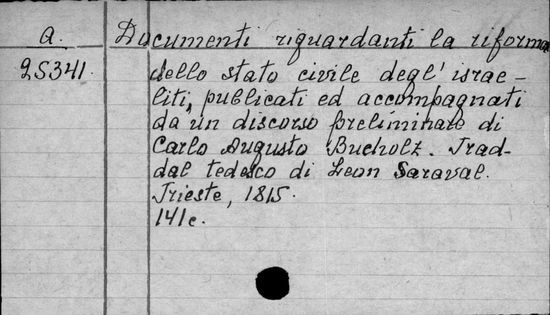 a. Documenti riguardanti la riforma
25341. dello stato civile degl' israe-
liti, publicati ed accompagnati
da un discorso preliminare di
Carlo Augusto Bucholz. Trad-
dal tedesco di Leon Saraval.
Trieste, 1815.
141c.